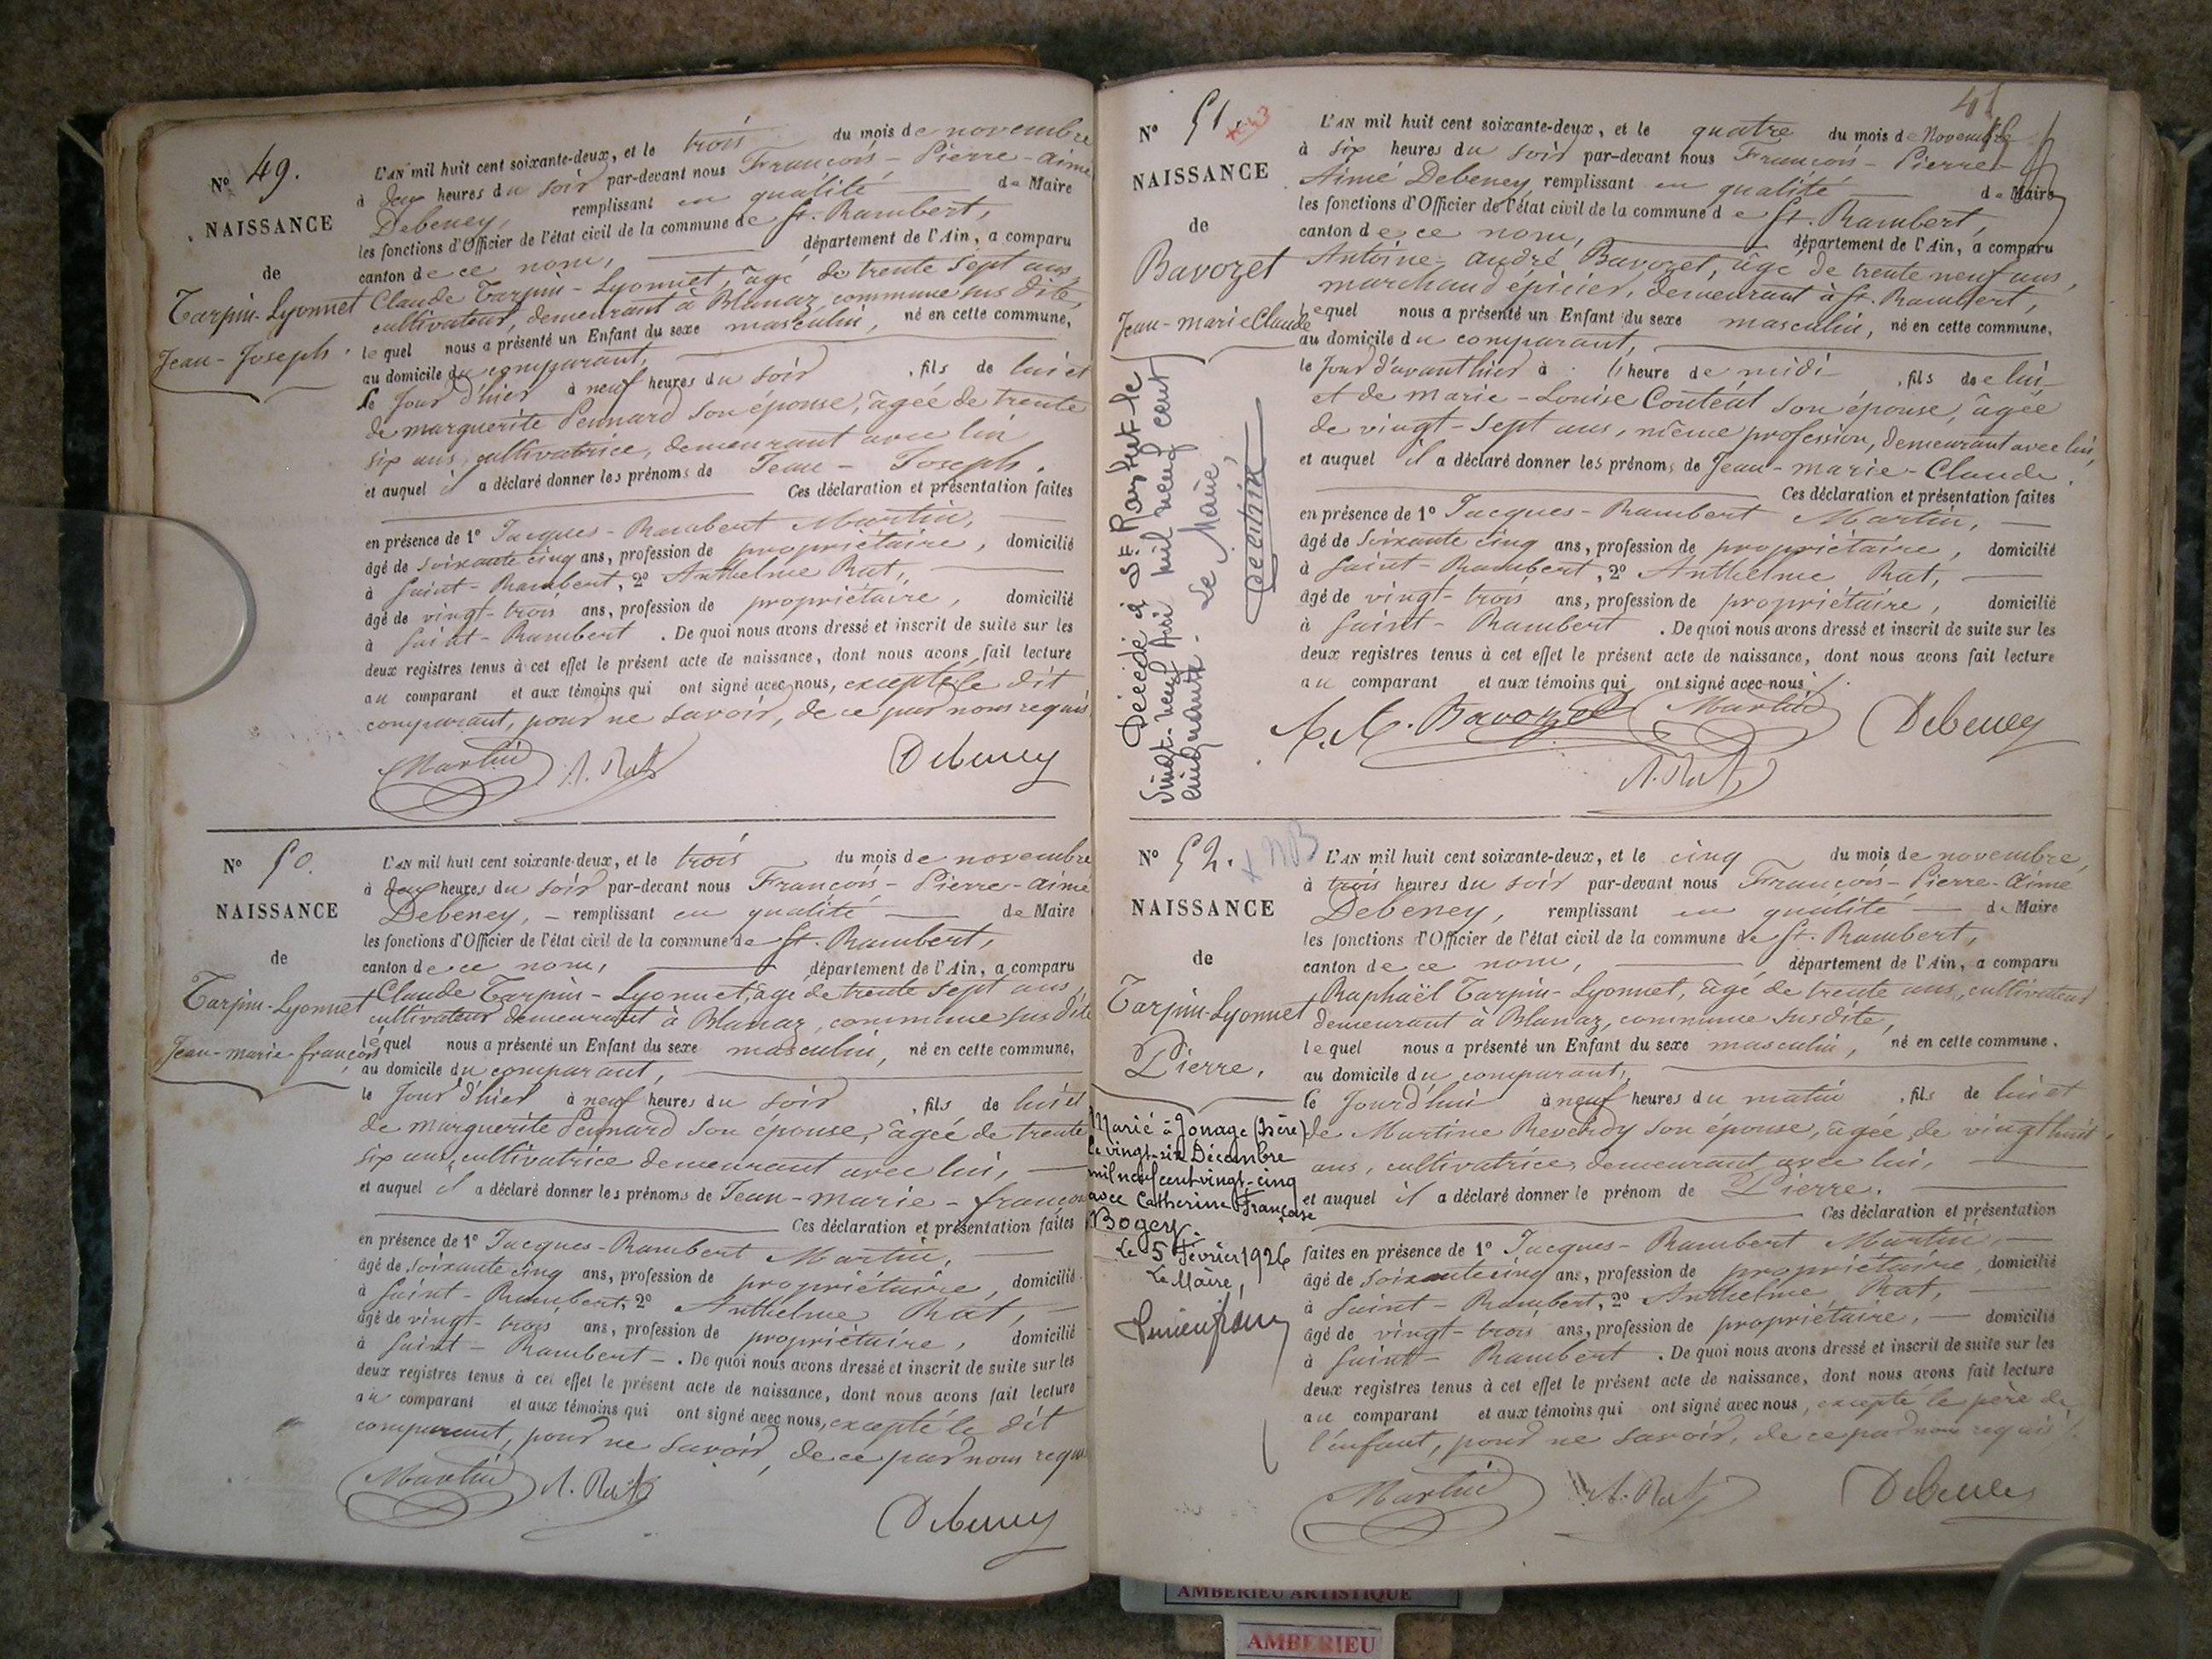 N° 49.
NAISSANCE
de
Tarpin-Lyonnet
Jean-Joseph.
L'AN mil huit cent soixante-deux, et le trois du mois de novembre
à deux heures du soir par-devant nous François-Pierre-Aimé
Debeney, remplissant en qualité de Maire
les fonctions d'Officier de l'état civil de la commune de St. Rambert,
canton de ce nom, département de l'Ain, a comparu
Claude Tarpin-Lyonnet, âgé de trente sept ans,
cultivateur, demeurant à Blanaz, commune sus dite,
lequel nous a présenté un Enfant du sexe masculin, né en cette commune,
au domicile du comparant,
le jour d'hier à neuf heures du soir, fils de lui et
de marguerite Pennard son épouse, âgée de trente
six ans, cultivatrice, demeurant avec lui
et auquel il a déclaré donner les prénoms de Jean-Joseph.
Ces déclaration et présentation faites
en présence de 1° Jacques-Rambert Martin,
âgé de soixante cinq ans, profession de propriétaire, domicilié
à Saint-Rambert, 2° Anthelme Rat,
âgé de vingt-trois ans, profession de propriétaire, domicilié
à Saint-Rambert. De quoi nous avons dressé et inscrit de suite sur les
deux registres tenus à cet effet le présent acte de naissance, dont nous avons fait lecture
au comparant et aux témoins qui ont signé avec nous, excepté le dit
comparant, pour ne savoir, de ce par nous requis
Martin A. Rat Debeney
N° 50.
NAISSANCE
de
Tarpin-Lyonnet
Jean-marie-françois
L'AN mil huit cent soixante-deux, et le trois du mois de novembre
à deux heures du soir par-devant nous François-Pierre-Aimé
Debeney, - remplissant en qualité de Maire
les fonctions d'Officier de l'état civil de la commune de St. Rambert,
canton de ce nom, département de l'Ain, a comparu
Claude Tarpin-Lyonnet, âgé de trente sept ans,
cultivateur demeurant à Blanaz, commune sus dite
lequel nous a présenté un Enfant du sexe masculin, né en cette commune,
au domicile du comparant,
le jour d'hier à neuf heures du soir, fils de lui et
de marguerite Pennard son épouse, âgée de trente
six ans, cultivatrice demeurant avec lui,
et auquel il a déclaré donner les prénoms de Jean-marie-françois
Ces déclaration et présentation faites
en présence de 1° Jacques-Rambert Martin,
âgé de soixante cinq ans, profession de propriétaire, domicilié
à Saint-Rambert, 2° Anthelme Rat,
âgé de vingt-trois ans, profession de propriétaire, domicilié
à Saint-Rambert-. De quoi nous avons dressé et inscrit de suite sur les
deux registres tenus à cet effet le présent acte de naissance, dont nous avons fait lecture
au comparant et aux témoins qui ont signé avec nous, excepté le dit
comparant, pour ne savoir, de ce par nous requis
Martin A. Rat
Debeney
N° 51.
NAISSANCE
de
Bavozet
Jean-marie Claude
Décédé à St Rambert le
vingt-neuf Avril mil neuf cent
cinquante. Le Maire,
L'AN mil huit cent soixante-deux, et le quatre du mois de Novembre
à six heures du soir par-devant nous François-Pierre-
Aimé Debeney, remplissant en qualité de Maire
les fonctions d'Officier de l'état civil de la commune de St. Rambert,
canton de ce nom, département de l'Ain, a comparu
Antoine-André Bavozet, âgé de trente neuf ans,
marchand épicier, demeurant à St. Rambert,
lequel nous a présenté un Enfant du sexe masculin, né en cette commune,
au domicile du comparant,
le jour d'avant hier à l'heure de midi, fils de lui
et de marie-Louise Contéat son épouse, âgée
de vingt-sept ans, même profession, demeurant avec lui,
et auquel il a déclaré donner les prénoms de Jean-marie-Claude.
Ces déclaration et présentation faites
en présence de 1° Jacques-Rambert Martin,
âgé de soixante cinq ans, profession de propriétaire, domicilié
à Saint-Rambert, 2° Anthelme Rat,
âgé de vingt-trois ans, profession de propriétaire, domicilié
à Saint-Rambert. De quoi nous avons dressé et inscrit de suite sur les
deux registres tenus à cet effet le présent acte de naissance, dont nous avons fait lecture
au comparant et aux témoins qui ont signé avec nous.
Bavozet Martin Debeney
A. Rat
N° 52.
NAISSANCE
de
Tarpin-Lyonnet
Pierre.
Marié à Jonage (Isère)
le vingt-six Décembre
mil neuf cent vingt-cinq
avec Catherine Françoise
Bogey.
Le 5 février 1926
Le Maire,
L'AN mil huit cent soixante-deux, et le cinq du mois de novembre,
à trois heures du soir par-devant nous François-Pierre-Aimé
Debeney, remplissant en qualité de Maire
les fonctions d'Officier de l'état civil de la commune de St. Rambert,
canton de ce nom, département de l'Ain, a comparu
Raphaël Tarpin-Lyonnet, âgé de trente ans, cultivateur
demeurant à Blanaz, commune susdite,
lequel nous a présenté un Enfant du sexe masculin, né en cette commune.
au domicile du comparant,
le jourd'hui à neuf heures du matin, fils de lui et
de Martine Reverdy son épouse, âgée de vingt huit
ans, cultivatrice, demeurant avec lui,
et auquel il a déclaré donner le prénom de Pierre.
Ces déclaration et présentation
faites en présence de 1° Jacques-Rambert Martin,
âgé de soixante cinq ans, profession de propriétaire, domicilié
à Saint-Rambert, 2° Anthelme Rat,
âgé de vingt-trois ans, profession de propriétaire, domicilié
à Saint-Rambert. De quoi nous avons dressé et inscrit de suite sur les
deux registres tenus à cet effet le présent acte de naissance, dont nous avons fait lecture
au comparant et aux témoins qui ont signé avec nous, excepté le père de
l'enfant, pour ne savoir, de ce par nous requis.
Martin A. Rat Debeney
AMBERIEU ARTISTIQUE
AMBERIEU